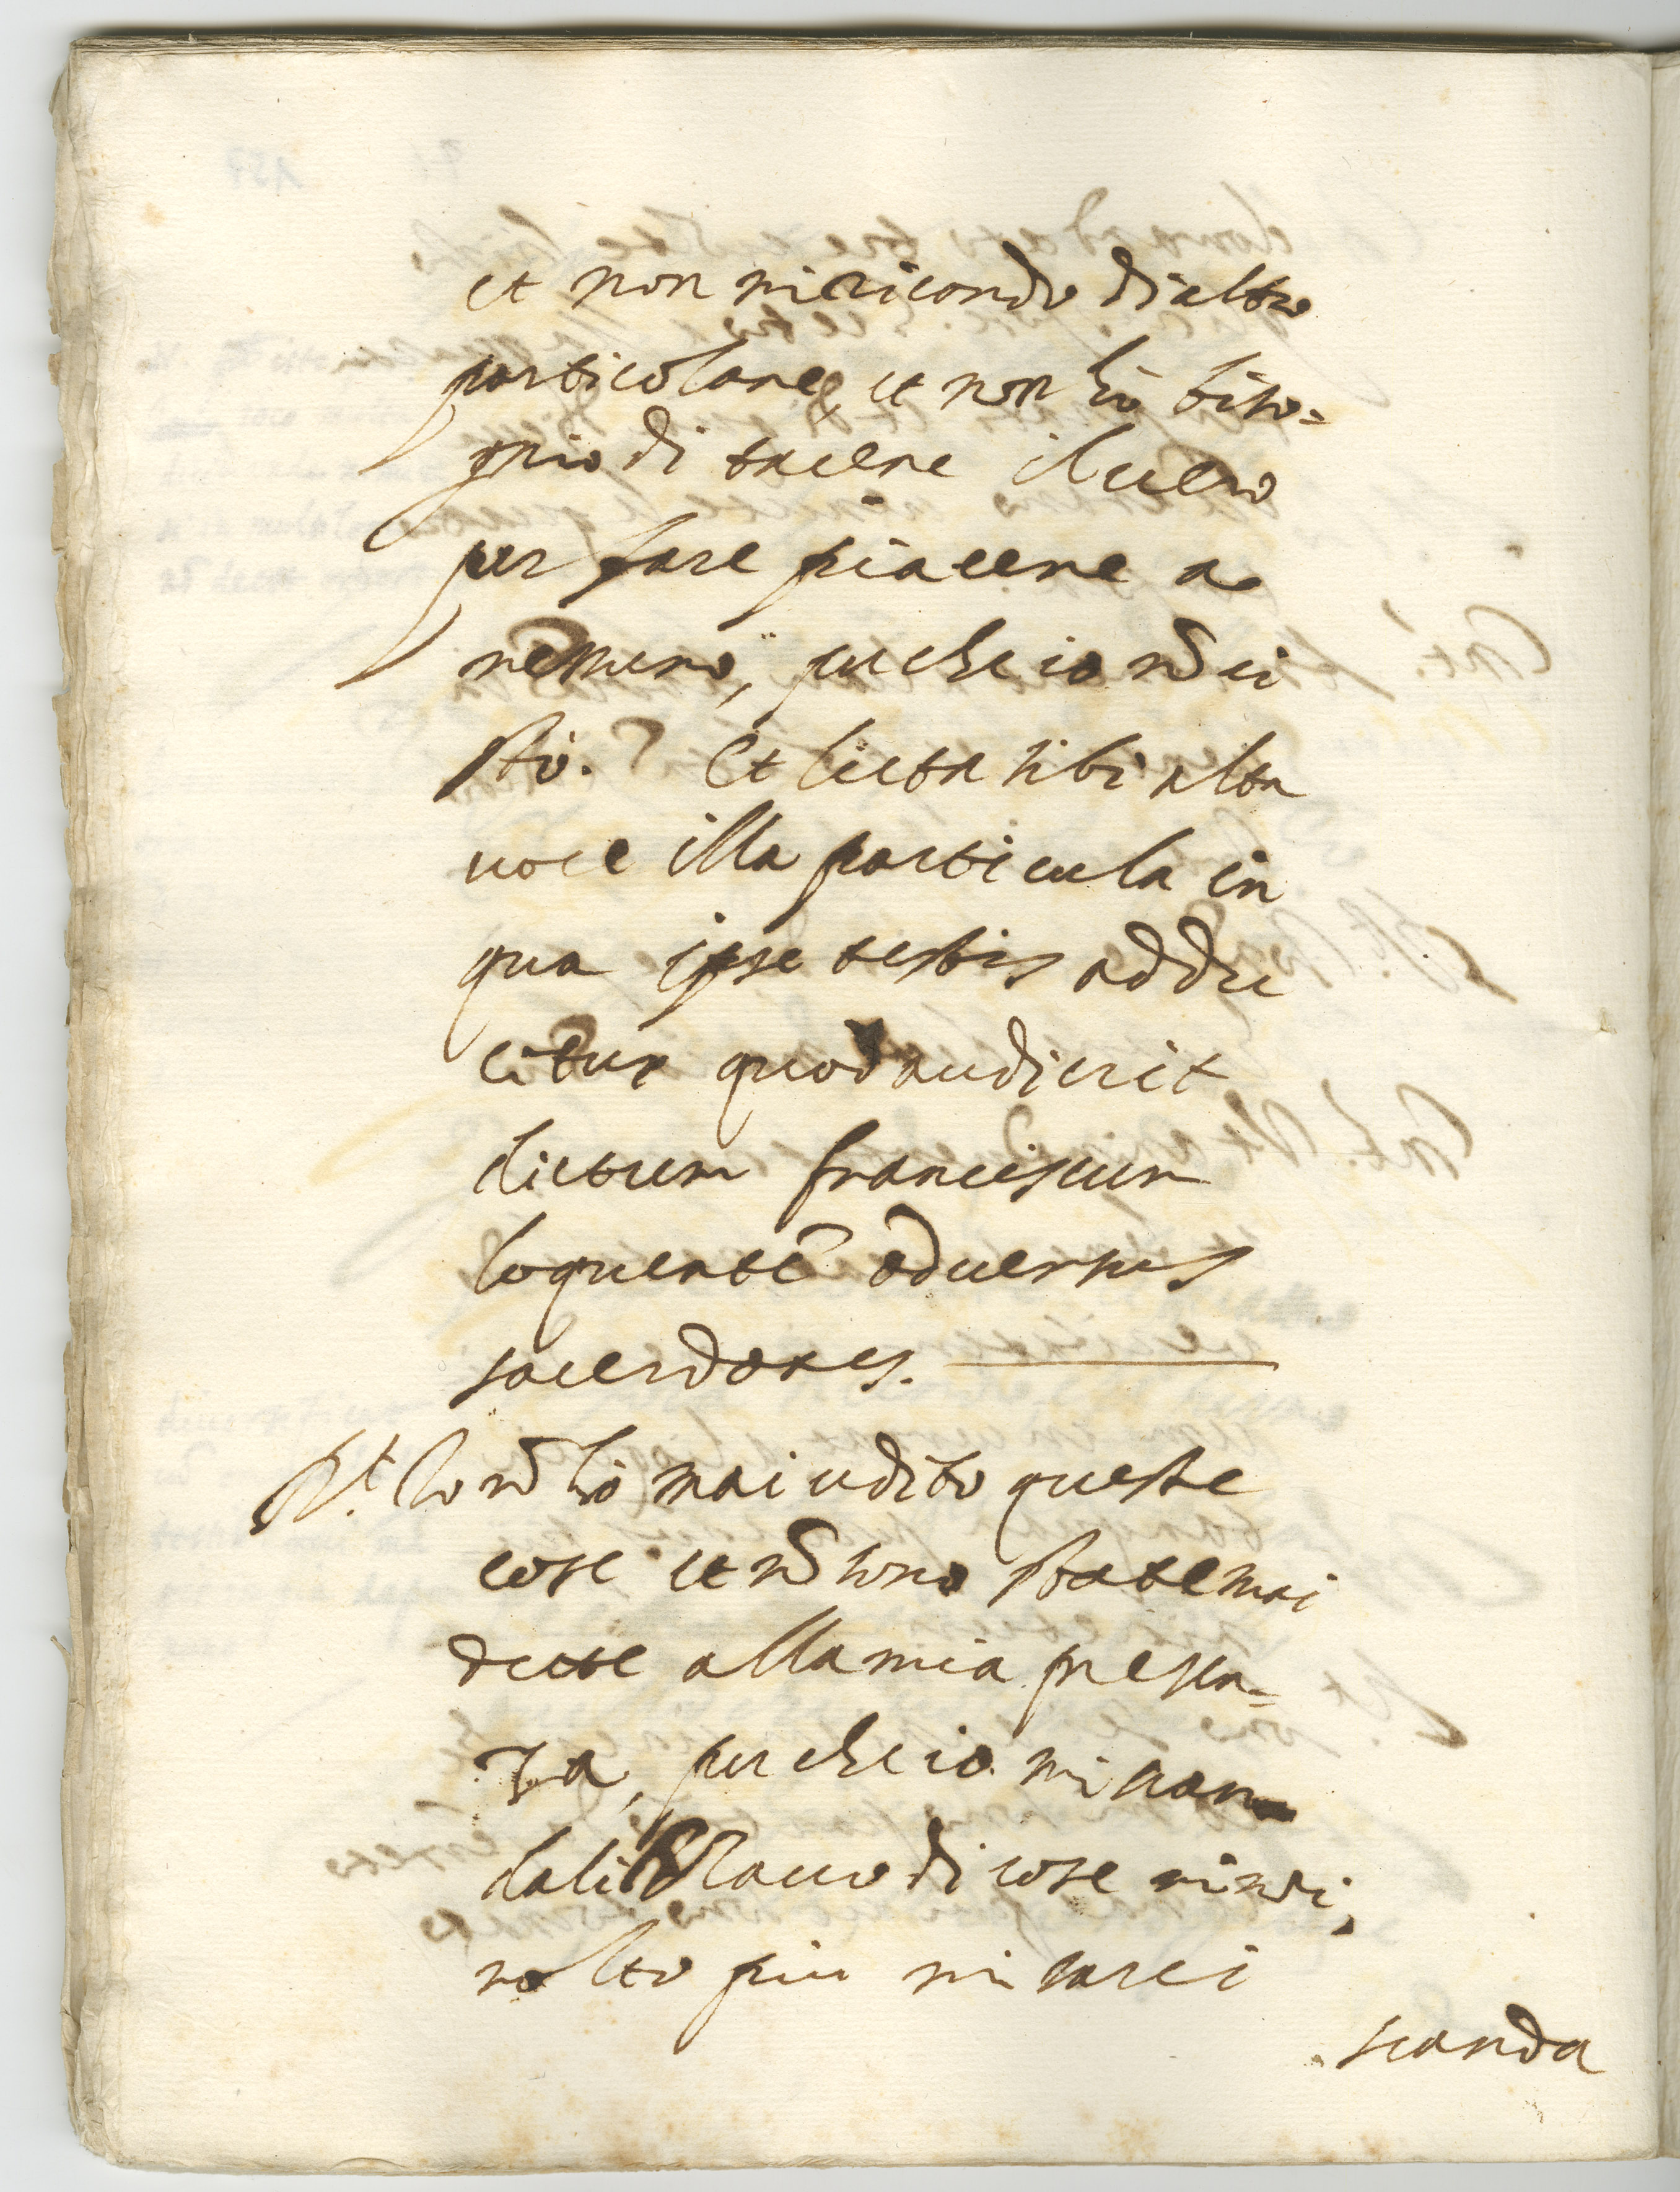 et non mi ricordo di altro
particolare, et non hò biso=
gnio di tacere il uero
per fare piacere a
nessuno, perche io nõ ci
stò. Et lecta sibi alta
uoce illa particula in
qua ipse testis addu
citur quod audierit
dictum franciscum
loquentẽ aduersus
sacerdotes.
Rt. Io nõ hò mai udito queste
cose et nõ sono state mai
dette alla mia presen=
za, perche io mi scan
dalizauo di cose minori,
molto piu mi sarei
scanda